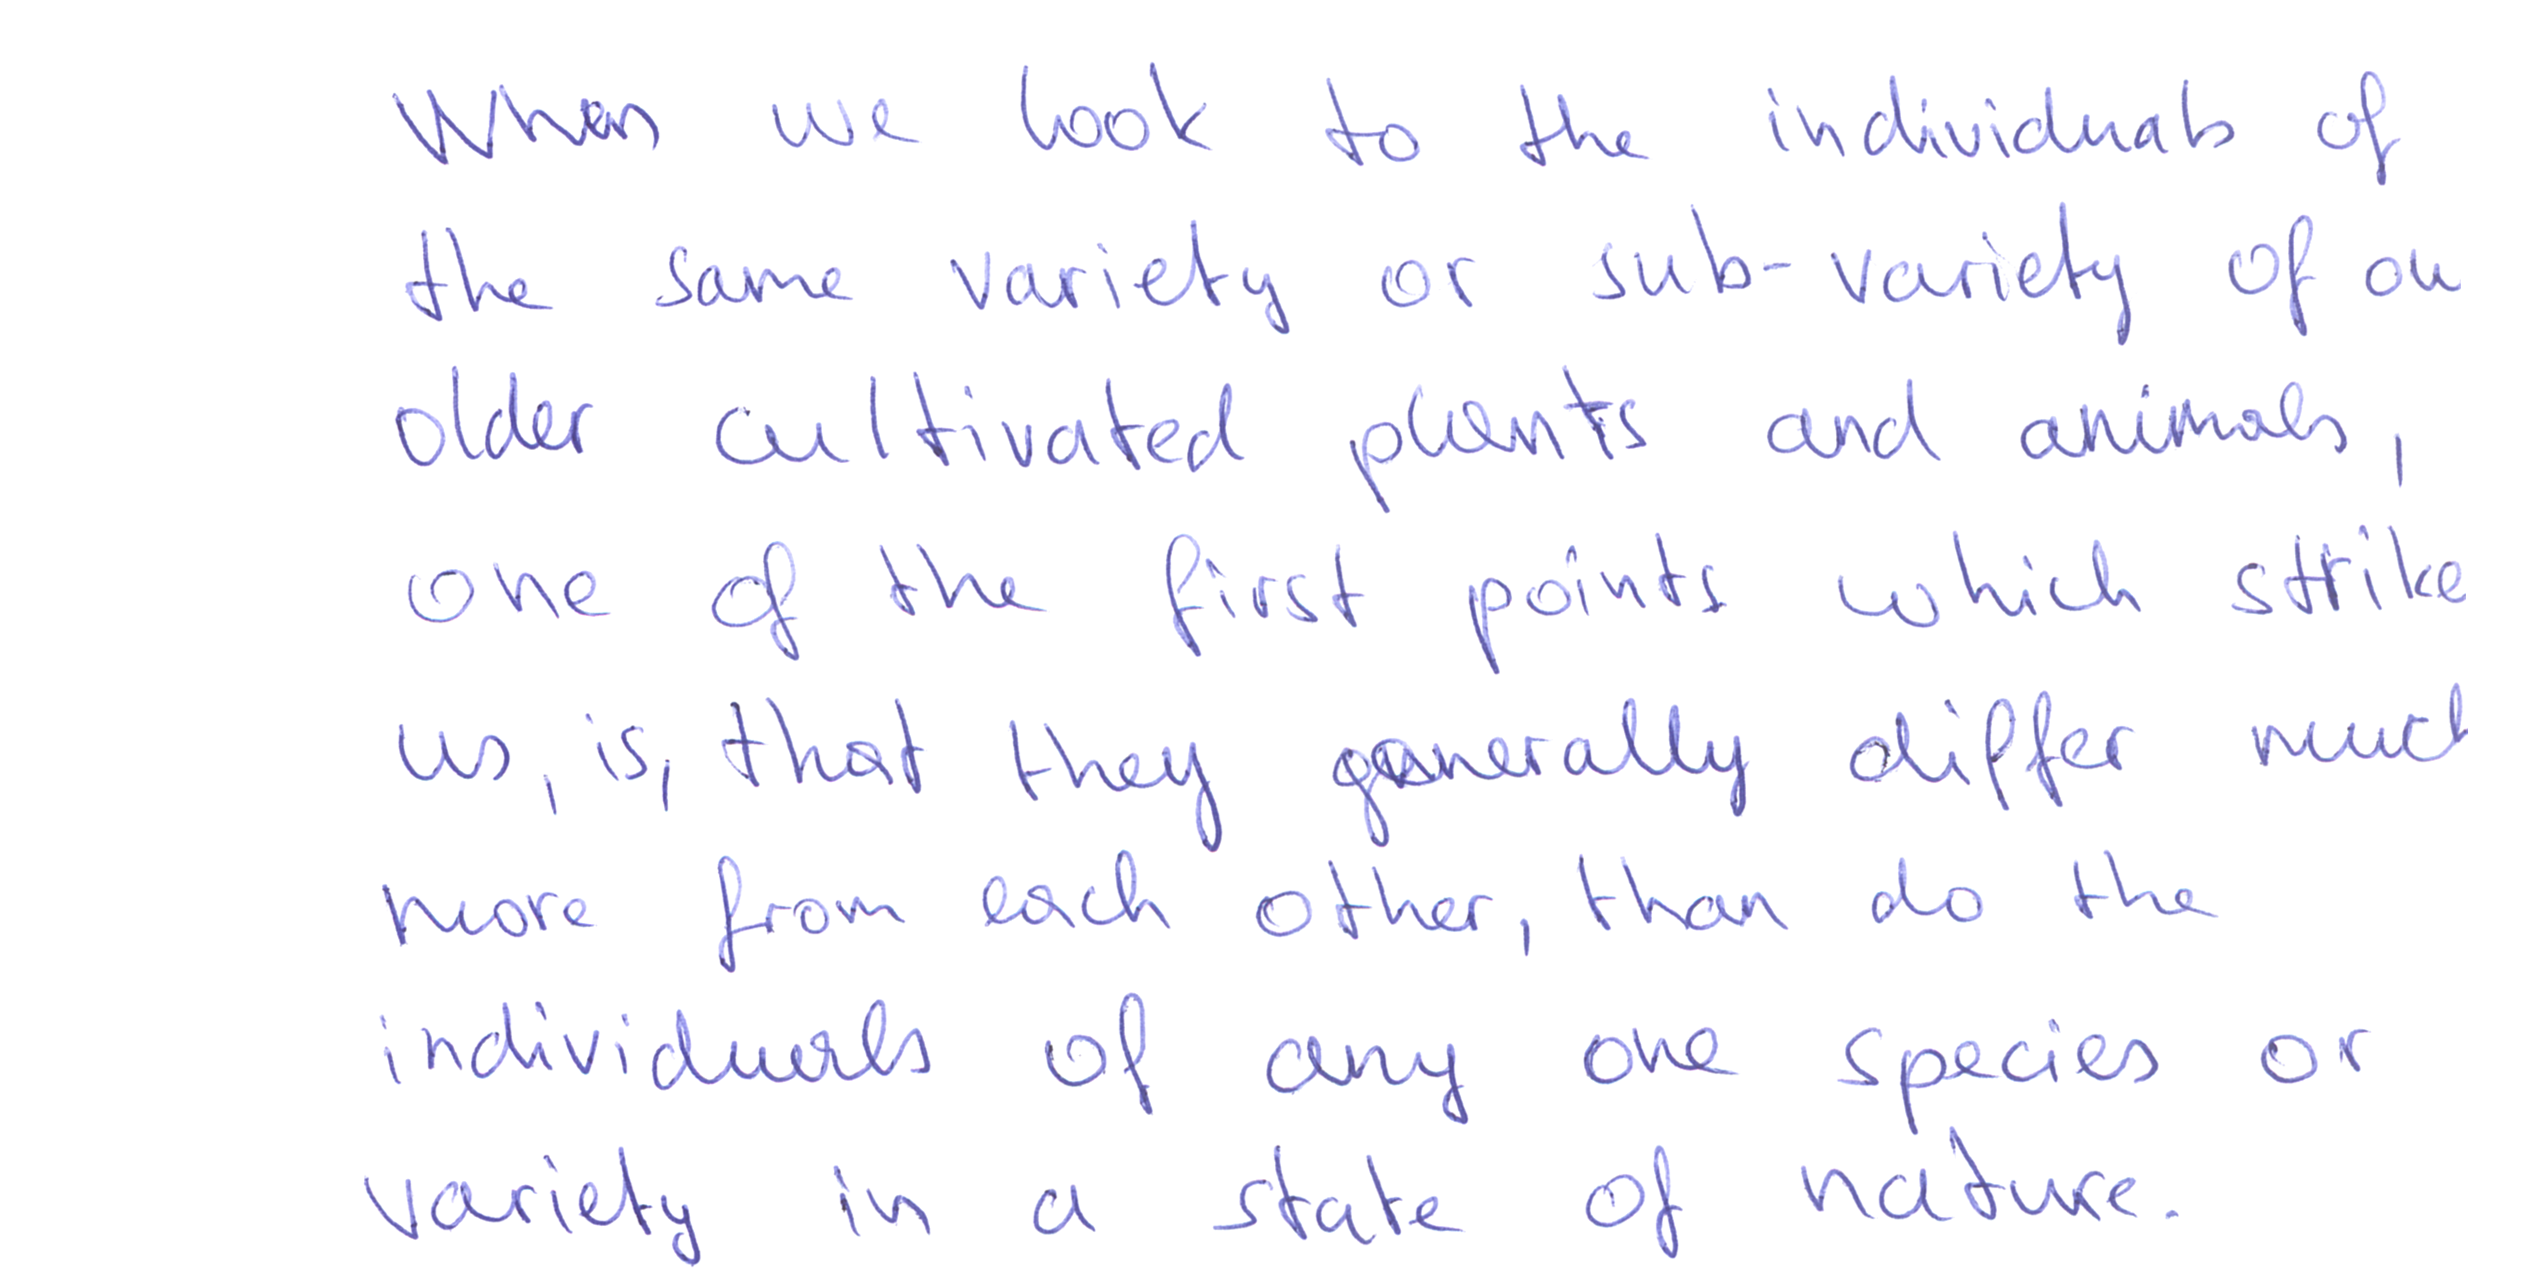 When we look to the individuals of
the same variety or sub-variety of ou
older cultivated plants and animals,
one of the first points which strike
us, is, that they generally differ much
more from each other, than do the
individuals of any one species or
variety in a state of nature.